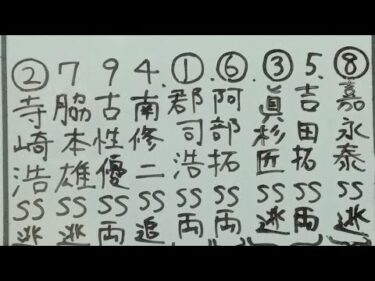 ② 寺崎浩 SS 逃
7 脇本雄 SS 逃
9 古性優 SS 両
4. 南修二 SS 追
①. 郡司浩 SS 両
⑥. 阿部拓 SS 両
③ 眞杉匠 SS 逃
5. 吉田拓 SS 両
⑧ 嘉永泰 SS 逃